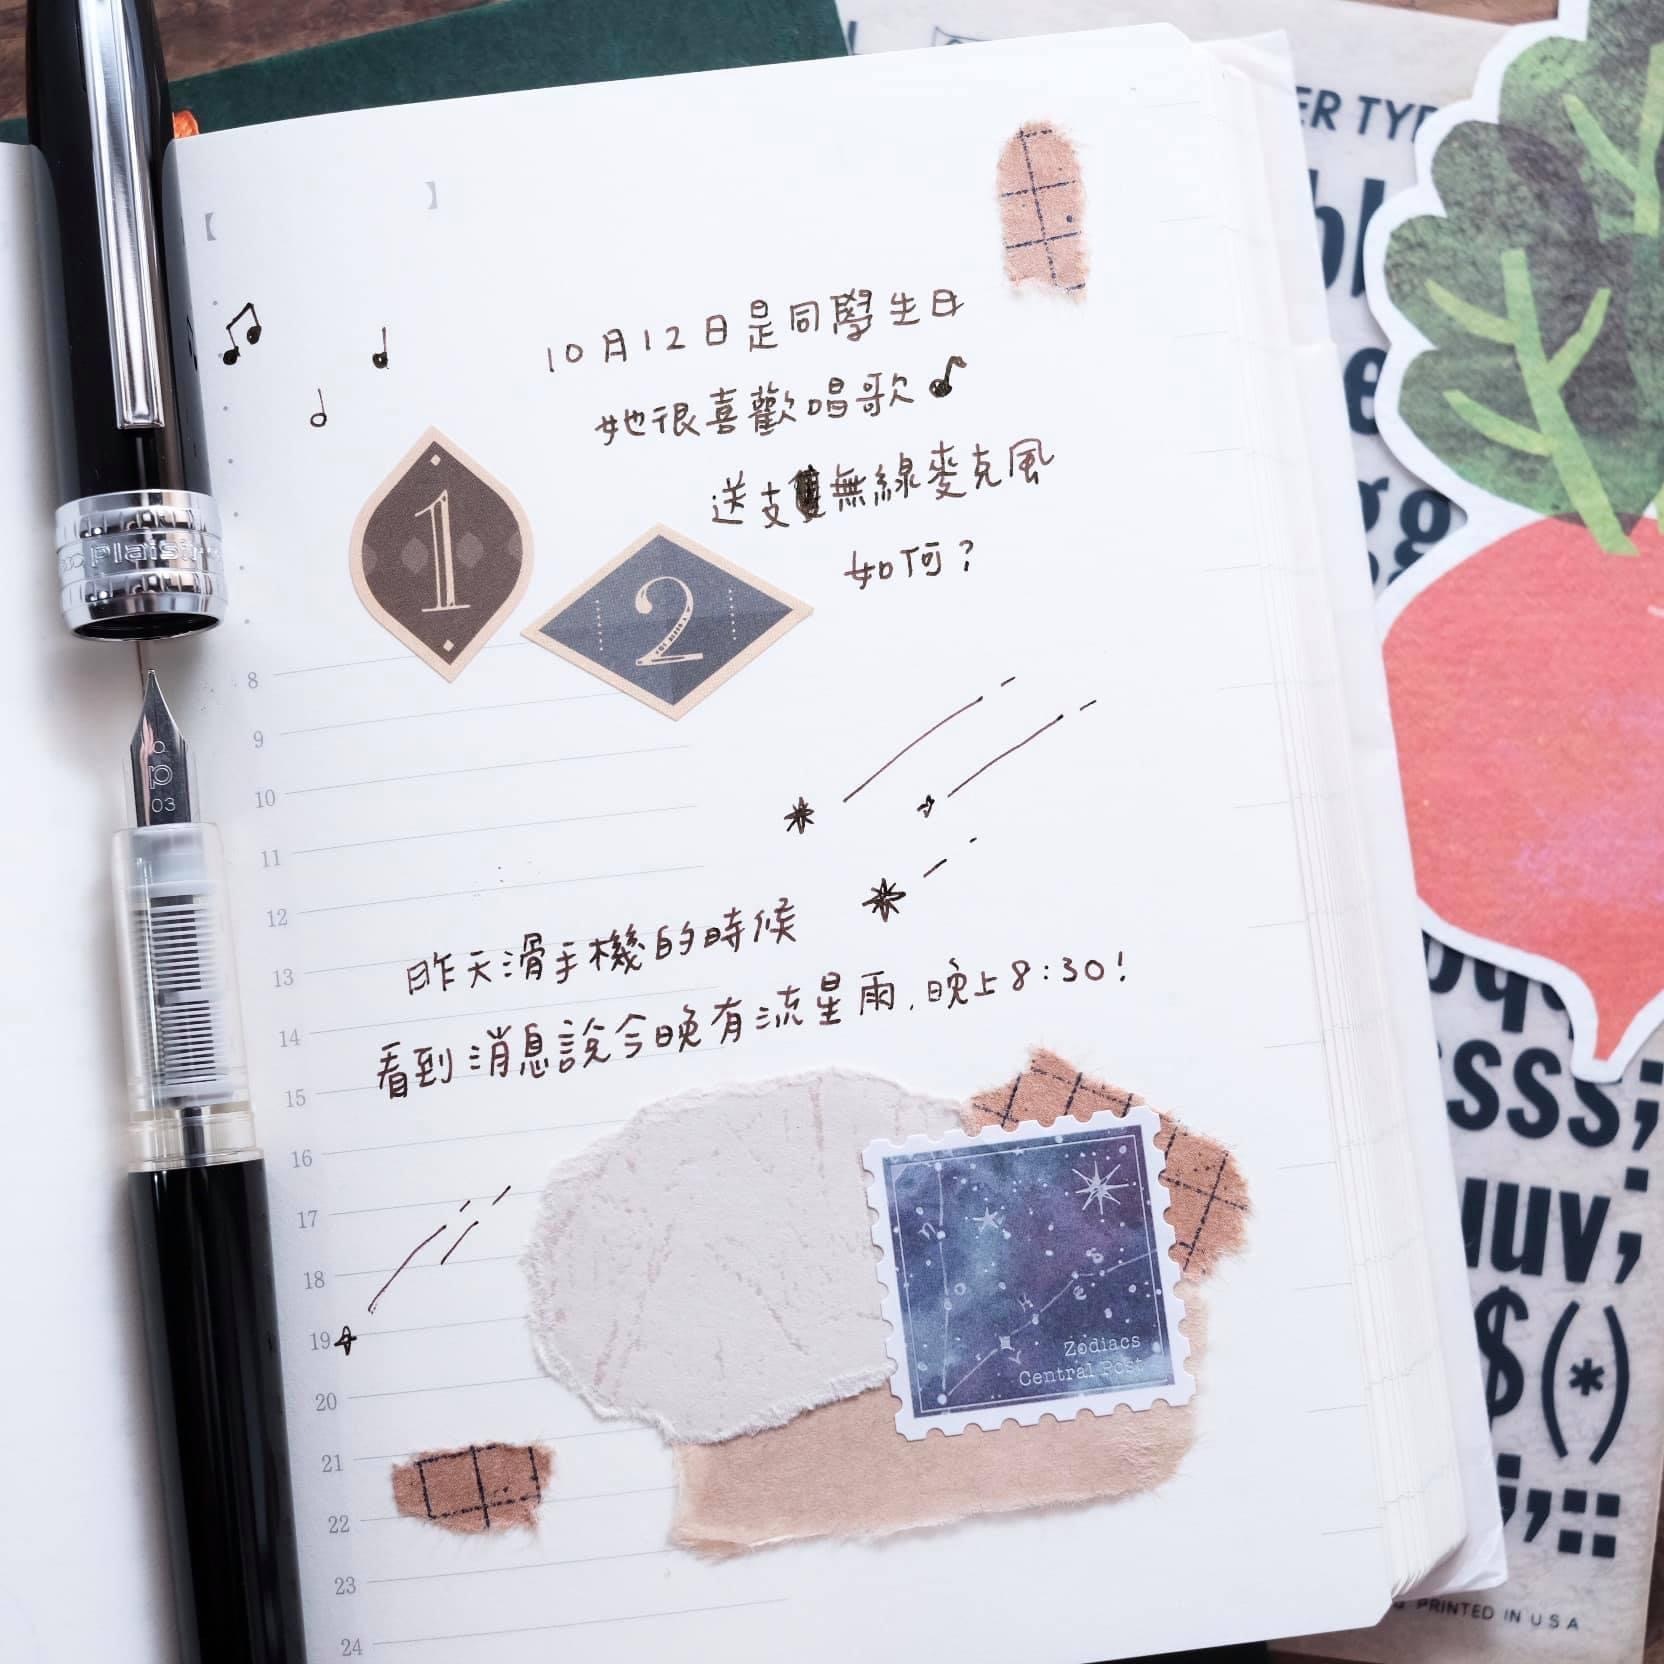 【 】
10月12日是同學生日
她很喜歡唱歌
送支無線麥克風
如何?
1
2
8
9
10
11
12
13
14
15
16
17
18
19
20
21
22
23
24
昨天滑手機的時候
看到消息說今晚有流星雨,晚上8:30!
Zodiacs
Central Post
Plaisir
p
03
ER TYP
gg
sss;
uuv;
$(*)
PRINTED IN USA